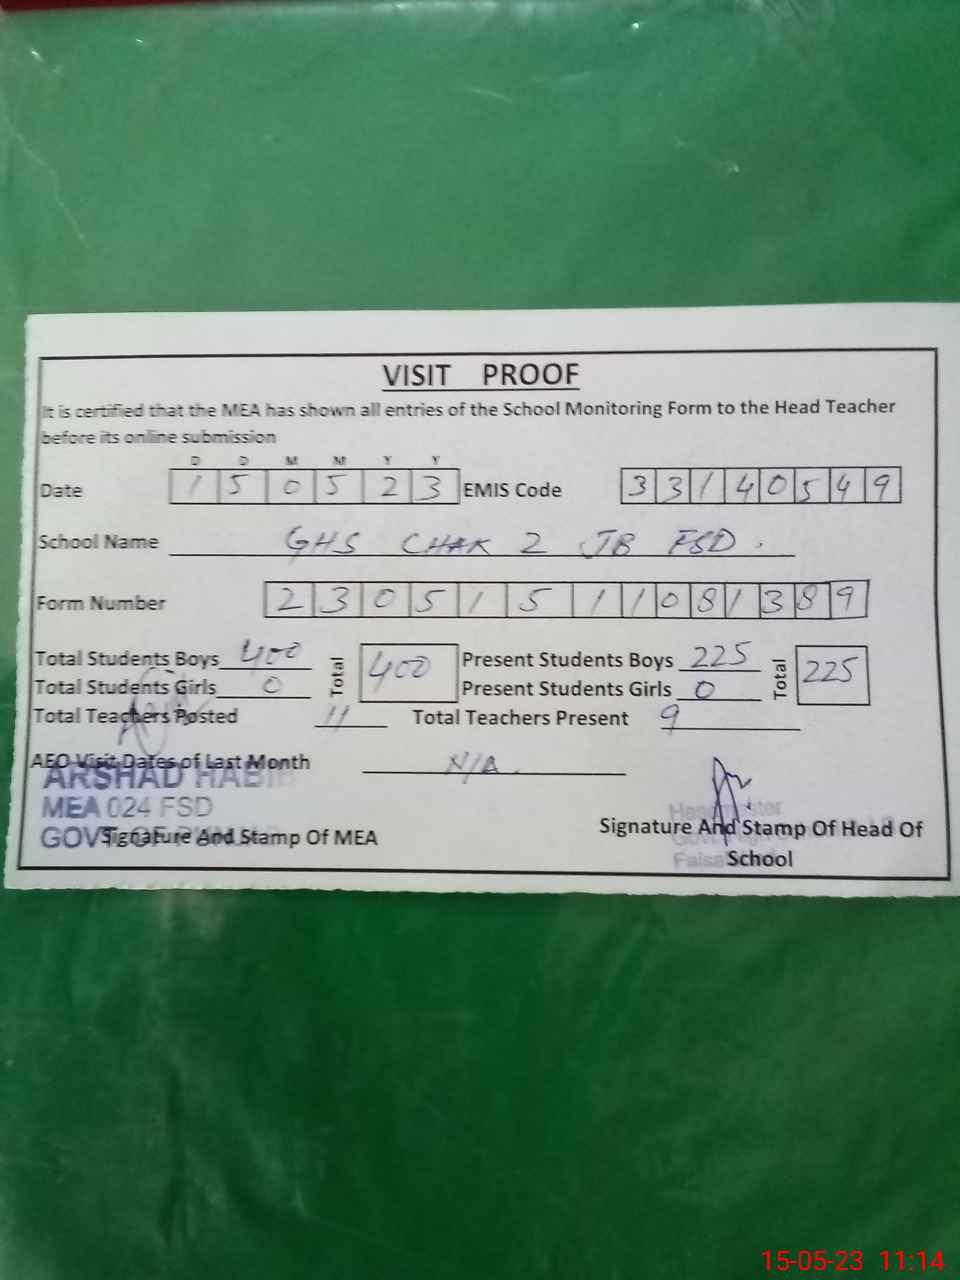 VISIT PROOF
It is certified that the MEA has shown all entries of the School Monitoring Form to the Head Teacher
before its online submission
D D M M Y Y
Date 1 5 0 5 2 3 EMIS Code 3 3 1 4 0 5 4 9
School Name GHS CHAK 2 JB FSD.
Form Number 2 3 0 5 1 5 1 1 0 8 1 3 8 9
Total Students Boys 400 Total 400 Present Students Boys 225 Total 225
Total Students Girls 0 Present Students Girls 0
Total Teachers Posted 11 Total Teachers Present 9
AEO Visit Dates of Last Month N/A
ARSHAD HABIB
MEA 024 FSD
GOVT OF
Signature And Stamp Of MEA
Signature And Stamp Of Head Of
School
15-05-23 11:14